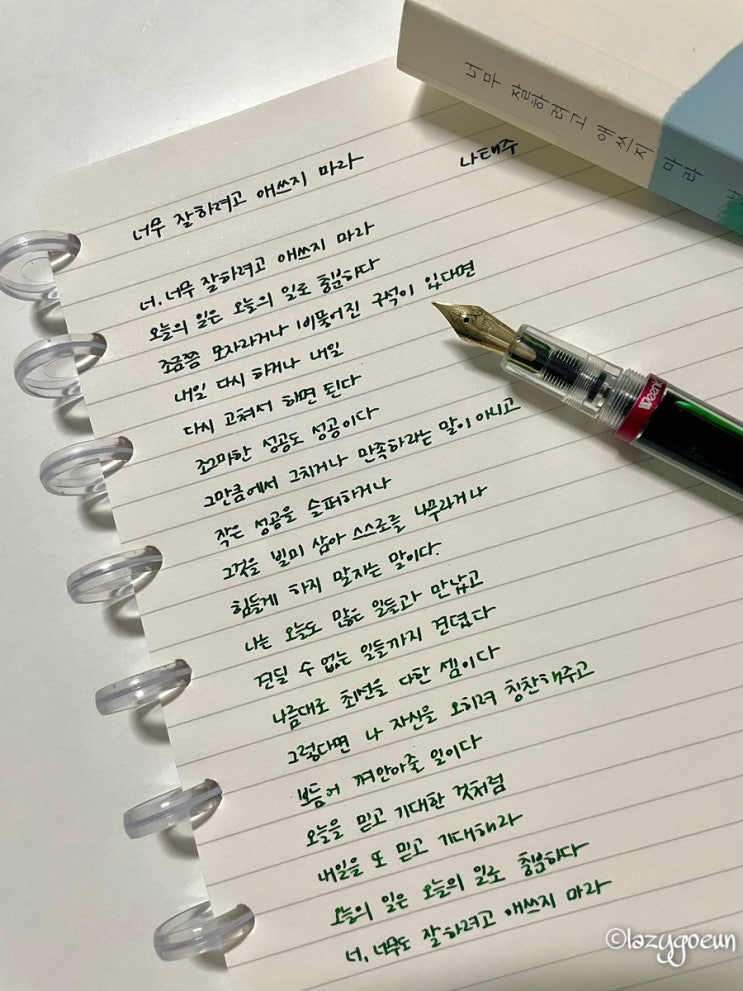 너무 잘하려고 애쓰지 마라
나태주
너무 잘하려고 애쓰지 마라
너, 너무 잘하려고 애쓰지 마라
오늘의 일은 오늘의 일로 충분하다
조금쯤 모자라거나 비뚤어진 구석이 있다면
내일 다시 하거나 내일
다시 고쳐서 하면 된다
조그마한 성공도 성공이다
그만큼에서 그치거나 만족하라는 말이 아니고
작은 성공을 슬퍼하거나
그것을 빌미 삼아 스스로를 나무라거나
힘들게 하지 말자는 말이다.
나는 오늘도 많은 일들과 만났고
견딜 수 없는 일들까지 견뎠다
나름대로 최선을 다한 셈이다
그렇다면 나 자신을 오히려 칭찬해주고
보듬어 껴안아줄 일이다
오늘을 믿고 기대한 것처럼
내일을 또 믿고 기대해라
오늘의 일은 오늘의 일로 충분하다
너, 너무도 잘하려고 애쓰지 마라
©lazygoeun